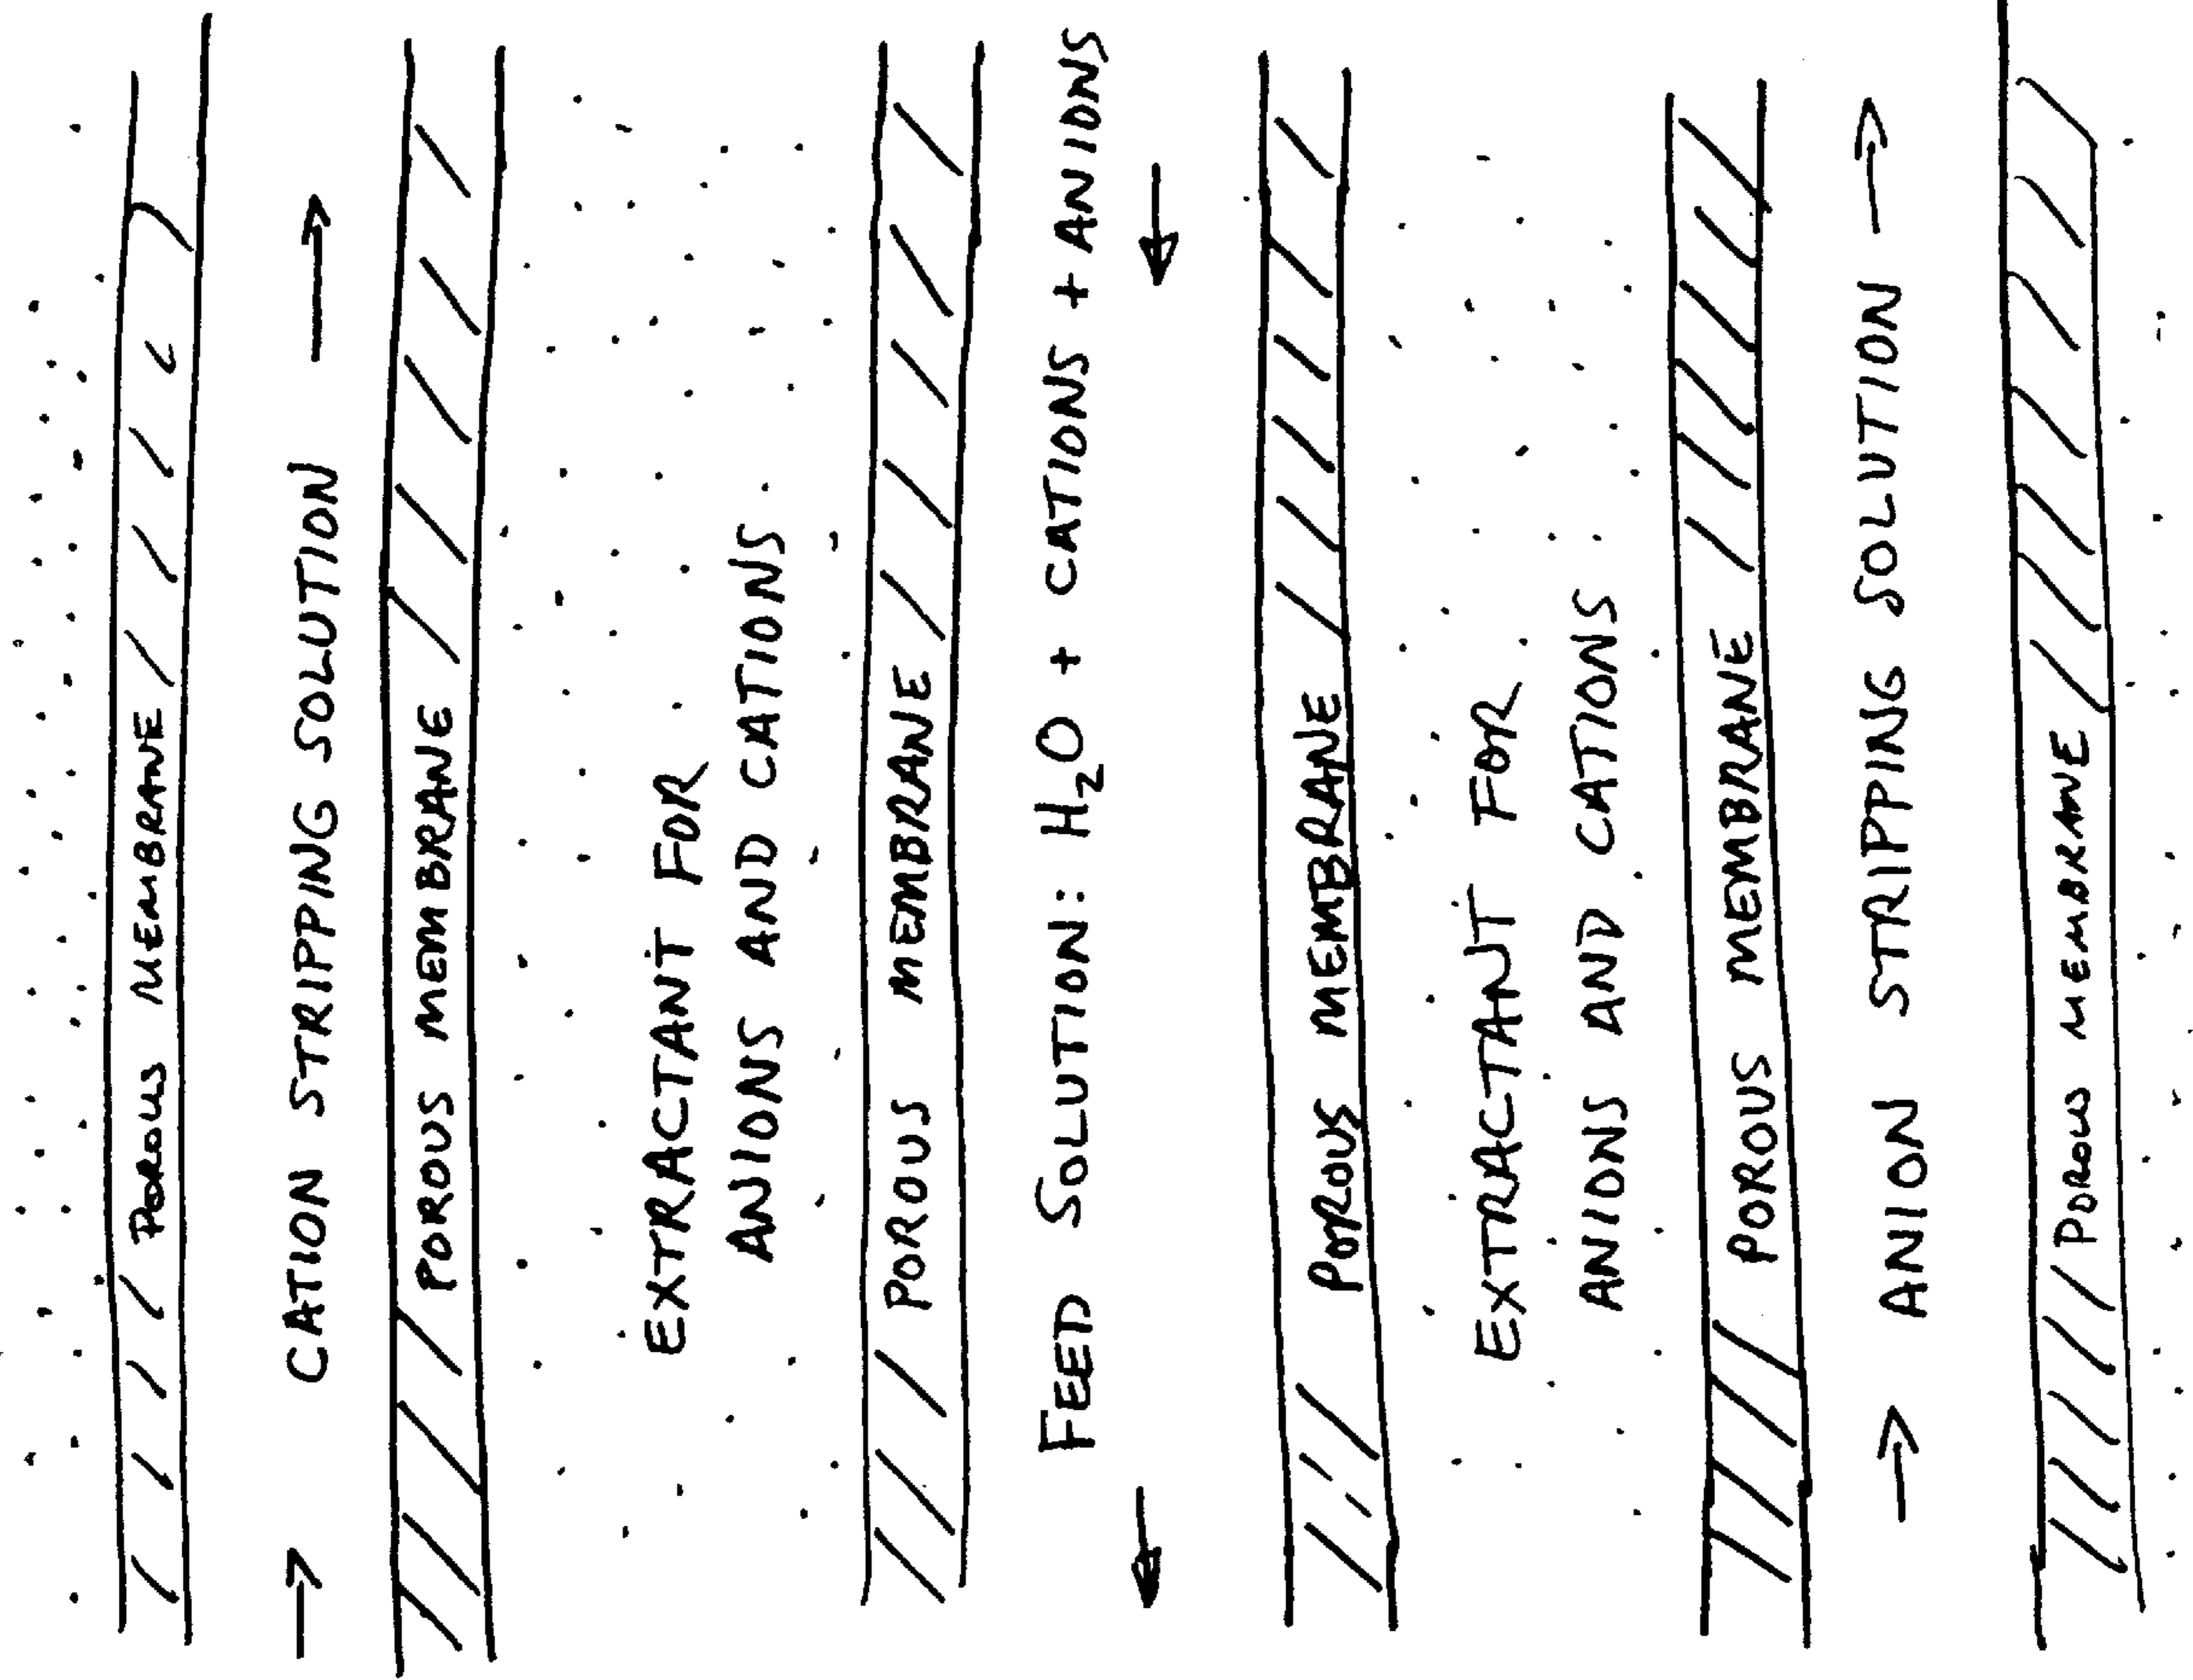 POROUS MEMBRANE
CATION STRIPPING SOLUTION
POROUS MEMBRANE
EXTRACTANT FOR
ANIONS AND CATIONS
POROUS MEMBRANE
FEED SOLUTION: H₂O + CATIONS + ANIONS
POROUS MEMBRANE
EXTRACTANT FOR
ANIONS AND CATIONS
POROUS MEMBRANE
ANION STRIPPING SOLUTION
POROUS MEMBRANE